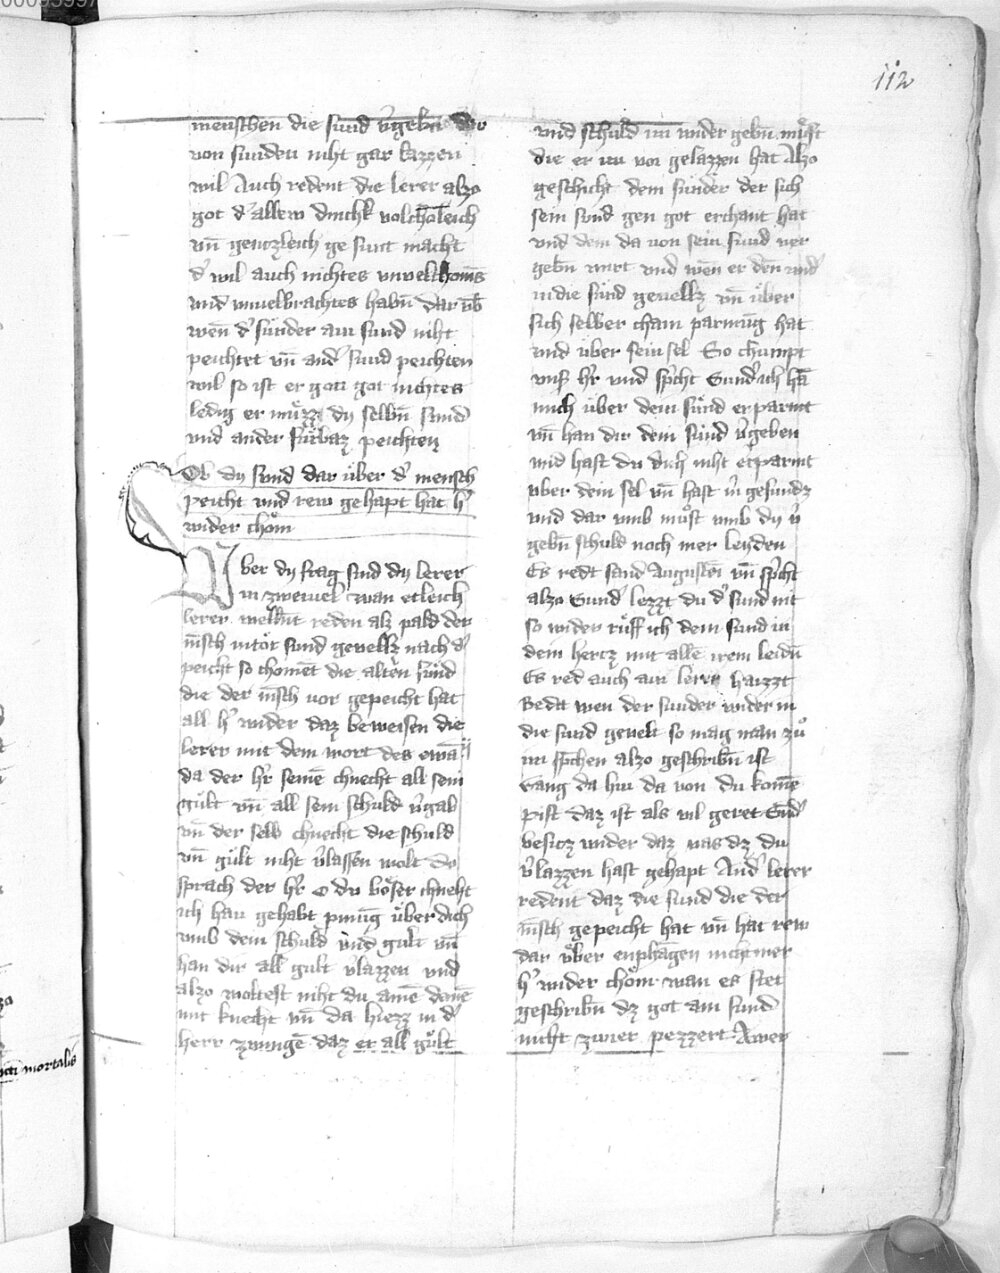 112
menschen die sund v̄gebn̄ der
von sunden niht gar lazzen
wil Auch redent die lerer alzo
got d' allew dinchk volchōleich
vn̄ gentzleich ge sunt macht
d' wil auch nichtes vnvelchoms
vnd vnuelbrachtes habn̄ Dar vb̄
wen̄ d' sunder ain sund niht
peichtet vn̄ and' sund peichten
wil so ist er gen got nichtes
ledig er mu̇zz dy selbn̄ sund
vnd ander fu̇rbaz peichten
Ob dy sund dar über d' mensch
peicht vnd rew gehapt hat h'
wider chöm
Vber dy frag sind dy lerer
in zweiuel wan etleich
lerer reden alz pald der
mēsch in tör sund geuellz nach d'
peicht so choment die alten sünd
die der mēsch vor gepeicht hat
all h' wider daz beweisen die
lerer mit dem wort des ewā
da der h'r seinē chnecht all sein
gült vn̄ all sein schuld v̄gab
vn̄ der selb chnecht die schuld
vn̄ gült niht v̄lassen wolt Do
sprach der h'r o du böser chneht
ich han gehabt pmüg über dich
vmb dein schuld vnd gult vn̄
han dir all gult v̄lazzen vnd
alzo woltest niht du ainē deinē
mit knecht vn̄ da hiezz in d'
herr zwingē daz er all gült
vnd schuld im wider gebn̄ müst
die er im vor gelazzen hat Alzo
geschicht dem sunder der sich
sein sund gen got erchant hat
vnd dem da von sein sund ver
gebn̄ wirt vnd wen er den wid'
in die sünd geuellz vn̄ über
sich selber chain parmüg hat
vnd über sein sel So chumpt
vnser h'r vnd sp'cht Sund' ich hā
mich über dein sünd erparmt
vn̄ han dir dein sünd v̄geben
vnd hast du dich niht erparmt
vber dein sel vn̄ hast in gesundz
vnd dar vmb müst vmb dy v̄
gebn̄ schuld noch mer leyden
Es redt sand Augustin vn̄ sp'cht
alzo Sund' lezzt du d' sund nit
so wider rüff ich dein sund in
dem hertz mit allē irem leidn̄
Es red auch ain lerer haizzt
Beda wen der sunder wider in
die sund geuelt so mag man zů
im sp'chen alzo geschribn̄ ist
Gang da hin da von du komē
pist daz ist als vil geret Sund'
besitz wider daz was dz du
v̄lazzen hast gehapt And' lerer
redent daz die sund die der
mēsch gepeicht hat vn̄ hat rew
dar über enphāgen nicht mer
h' wider chöm wan es stet
geschribn̄ dz got ain sund
nicht zwier pezzert Awer
mortalis